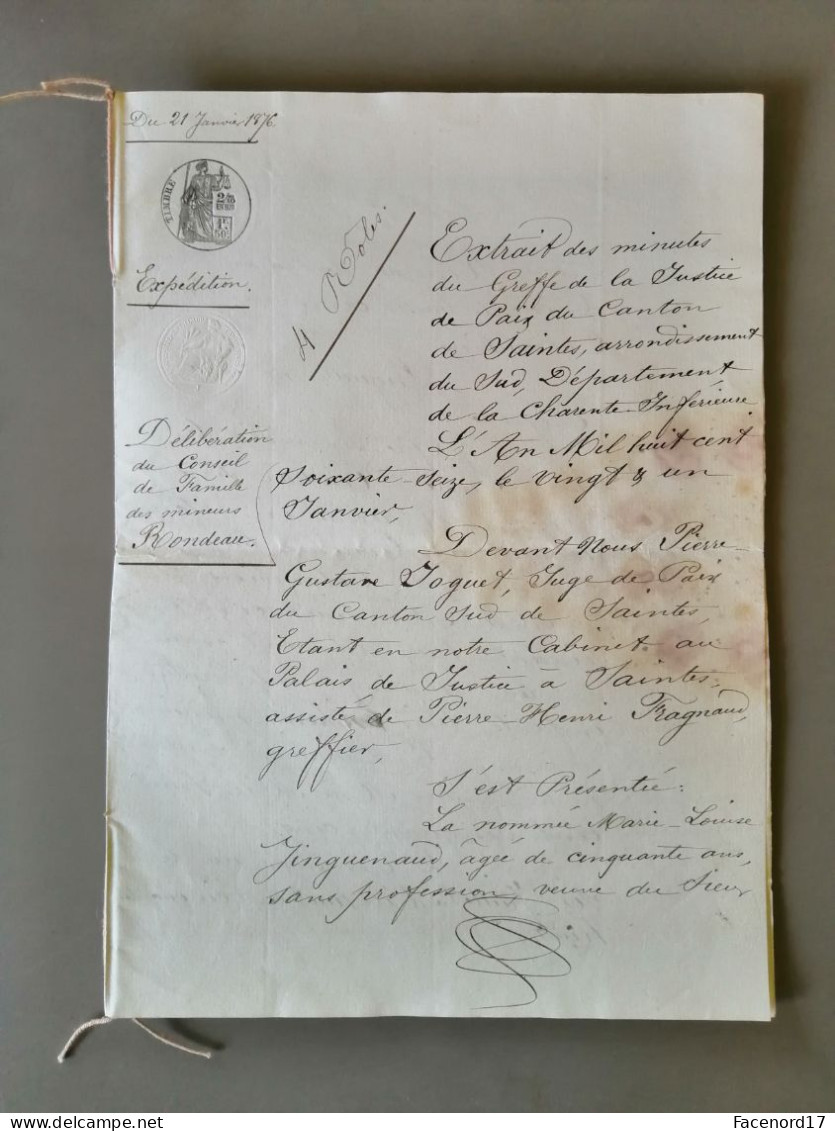 Du 21 Janvier 1876
TIMBRE
2/10
EN SUS
1F.
50C.
Expédition.
4 Roles.
Délibération
du Conseil
de Famille
des mineurs
Rondeau.
Extrait des minutes
du Greffe de la Justice
de Paix du Canton
de Saintes, arrondissement
du Sud, Département
de la Charente-Inférieure
L'An Mil huit cent
Soixante-Seize, le vingt & un
Janvier,
Devant Nous Pierre-
Gustave Joguet, Juge de Paix
du Canton Sud de Saintes,
Etant en notre Cabinet au
Palais de Justice à Saintes,
assisté de Pierre-Henri Fragnaud,
greffier,
S'est Présentée:
La nommée Marie-Louise
Jinguenaud, âgée de cinquante ans,
sans profession, veuve du Sieur
Facenord17